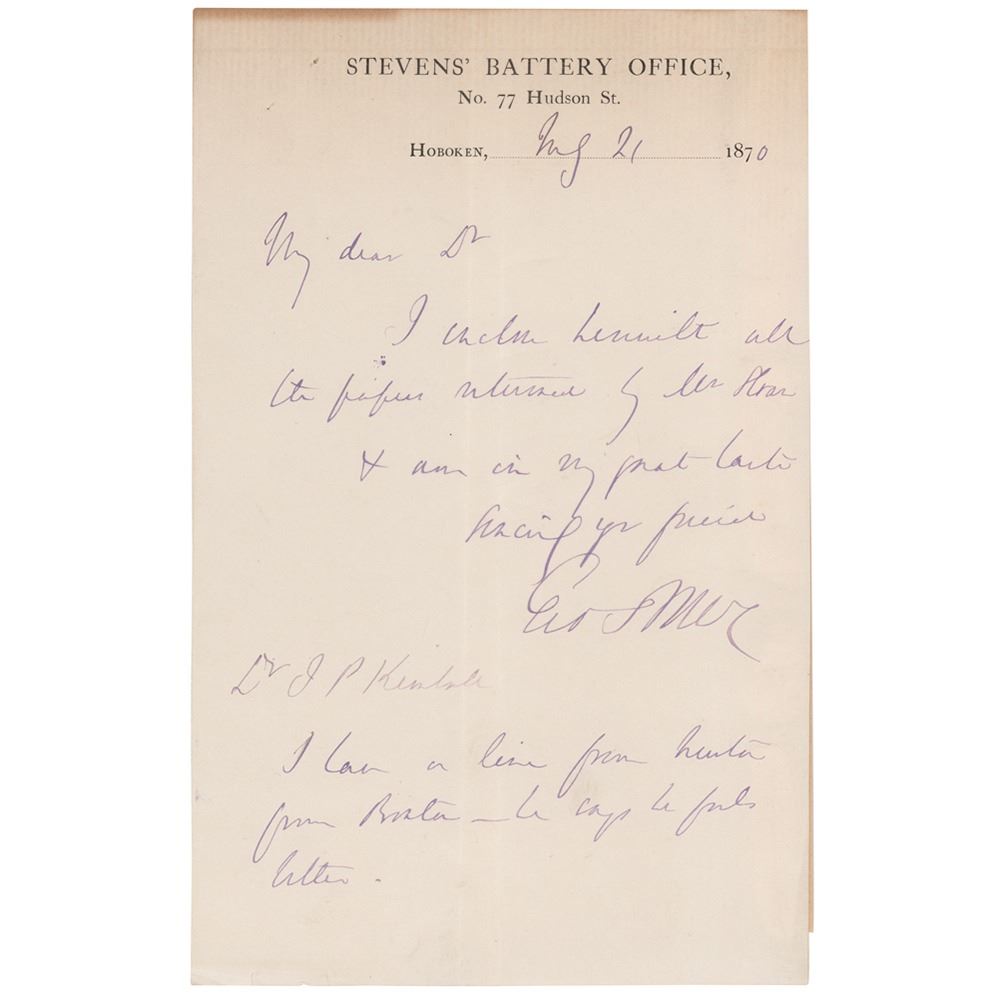 STEVENS' BATTERY OFFICE,
No. 77 Hudson St.
HOBOKEN, 21 1870
My dear Dr
I enclose herewith all
the papers returned by Mr Sloan
& am in my great haste
yr friend
Geo B McC
Dr J P Kimball
I have a line from Newton
from Boston – he says he feels
better.